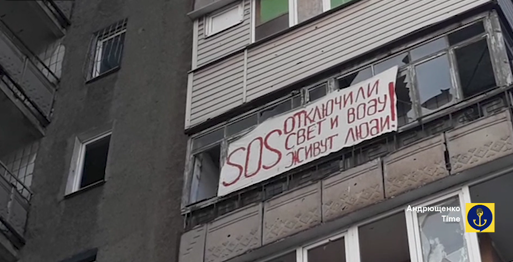 SOS
ОТКЛЮЧИЛИ
СВЕТ И ВОДУ
ЖИВУТ ЛЮДИ!
Андрющенко
Time